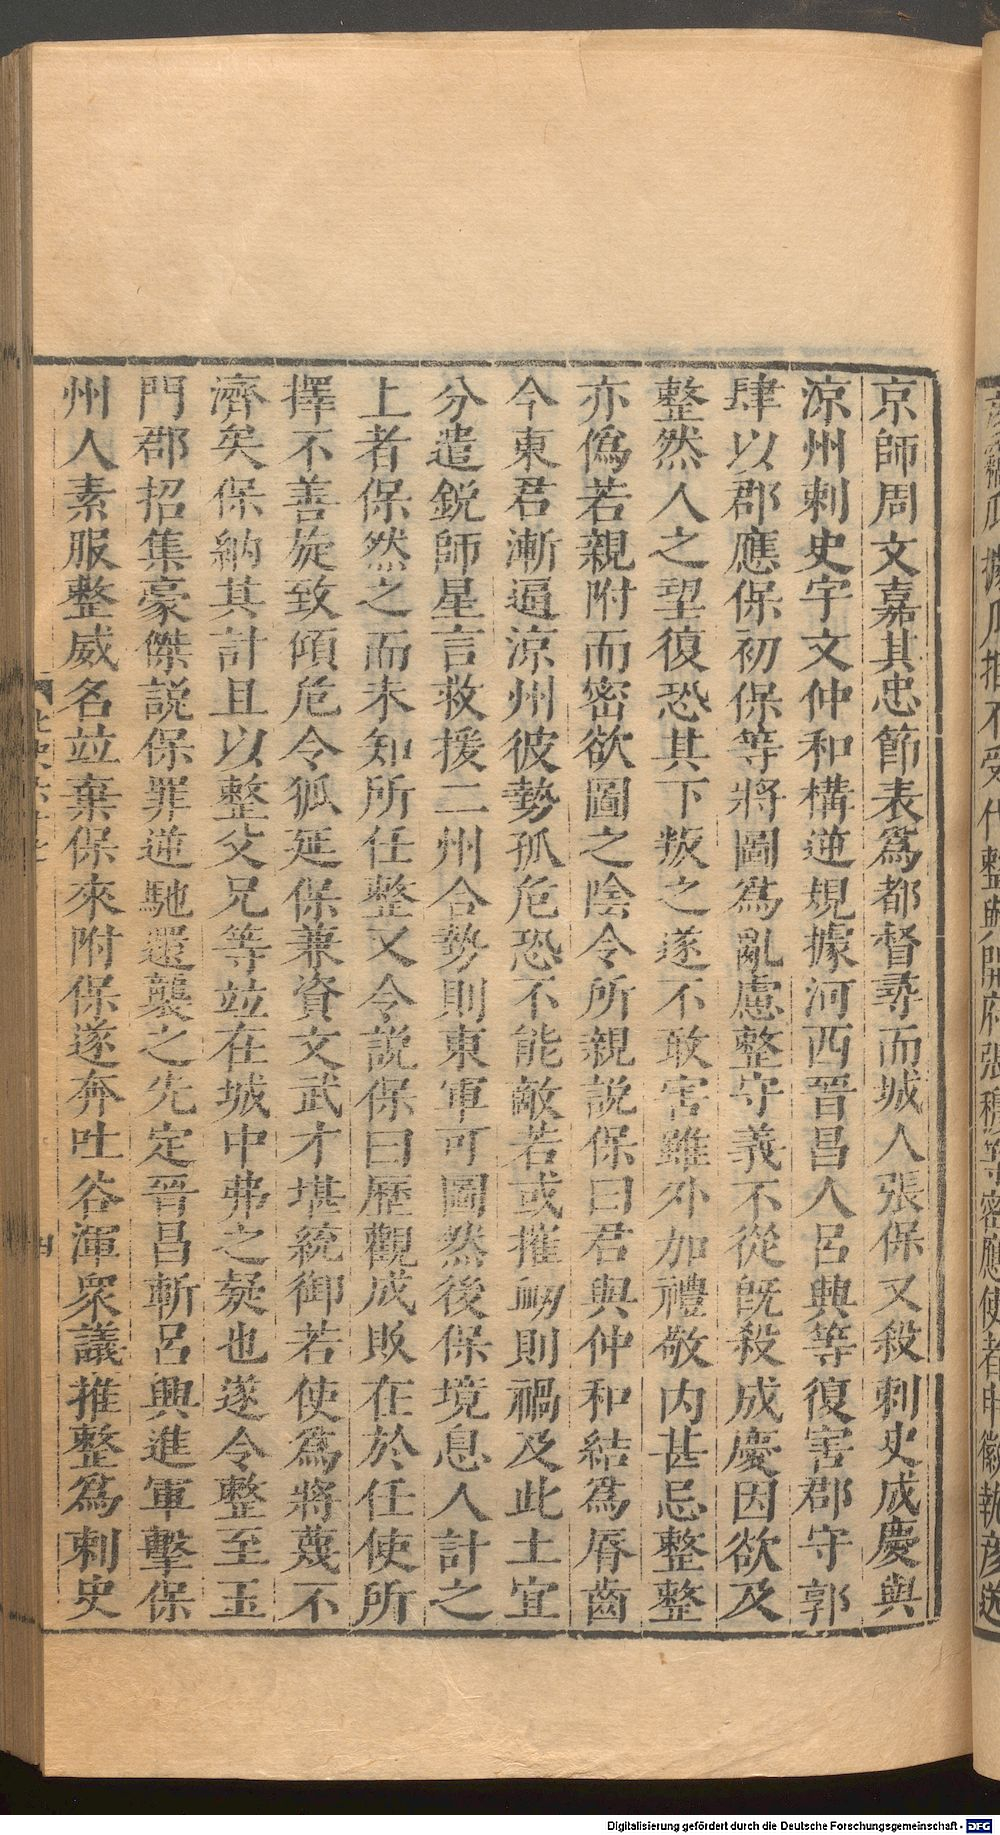 京師周文嘉其忠節表爲都督尋而城人張保又殺刺史成慶與
涼州刺史宇文仲和構逆規據河西晉昌人呂興等復害郡守郭
肆以郡應保初保等將圖爲亂慮整守義不從旣殺成慶因欲及
整然人之望復恐其下叛之遂不敢害雖外加禮敬内甚忌整整
亦僞若親附而密欲圖之陰令所親說保曰君與仲和結爲脣齒
今東君漸逼涼州彼勢孤危恐不能敵若或摧衂則禍及此土宜
分遣銳師星言救援二州合勢則東軍可圖然後保境息人計之
上者保然之而未知所任整又令說保曰歷觀成敗在於任使所
擇不善旋致傾危令狐延保兼資文武才堪統御若使爲將蔑不
濟矣保納其計且以整父兄等竝在城中弗之疑也遂令整至玉
門郡招集豪傑說保罪逆馳還襲之先定晉昌斬呂興進軍擊保
州人素服整威名竝棄保來附保遂奔吐谷渾衆議推整爲刺史
Digitalisierung gefördert durch die Deutsche Forschungsgemeinschaft - DFG